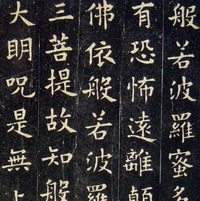 般若波羅蜜多
有恐怖遠離顛
佛依般若波羅
三菩提故知般
大明咒是無上